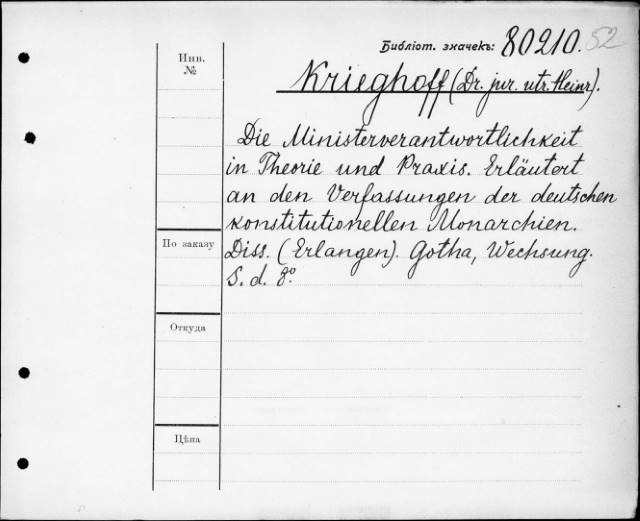 Библіот. значекъ: 80210. 52
Инв.
№
Krieghoff (Dr. jur. utr. Heinr.).
Die Ministerverantwortlichkeit
in Theorie und Praxis. Erläutert
an den Verfassungen der deutschen
konstitutionellen Monarchien.
По заказу
Diss. (Erlangen). Gotha, Wechsung.
S. d. 8°.
Откуда
Цѣна